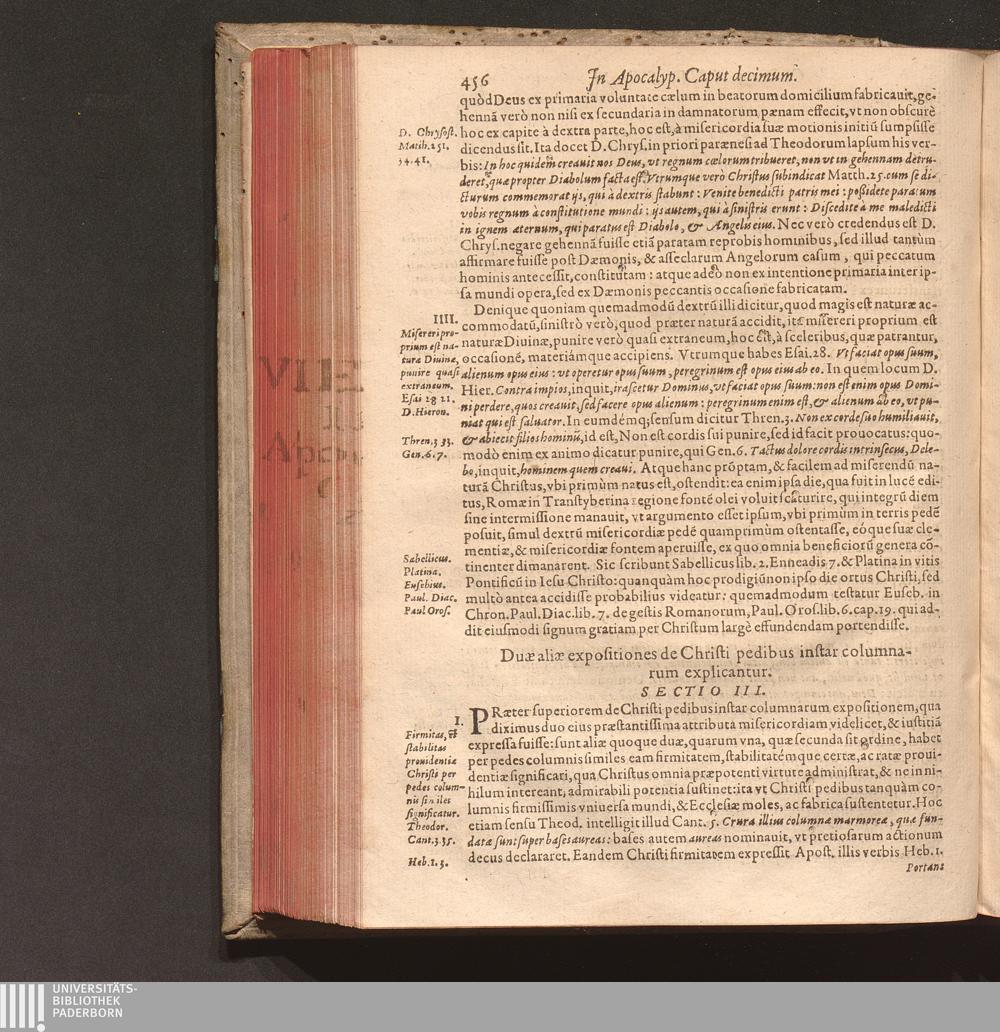 456
In Apocalyp. Caput decimum.
quòd Deus ex primaria voluntate cælum in beatorum domicilium fabricauit, ge-
hennã verò non nisi ex secundaria in damnatorum pænam effecit, vt non obscurè
hoc ex capite à dextra parte, hoc est, à misericordia suæ motionis initiũ sumpsisse
dicendus sit. Ita docet D. Chrys. in priori parænesi ad Theodorum lapsum his ver-
bis: In hoc quidem creauit nos Deus, vt regnum cælorum tribueret, non vt in gehennam detru-
deret, quæ propter Diabolum facta est. Vtrumque verò Christus subindicat Matth. 25. cum se di-
cturum commemorat ijs, qui à dextris stabunt: Venite benedicti patris mei: poßidete paratum
vobis regnum à constitutione mundi: ijs autem, qui à sinistris erunt: Discedite à me maledicti
in ignem æternum, qui paratus est Diabolo, & Angelis eius. Nec verò credendus est D.
Chrys. negare gehennã fuisse etiã paratam reprobis hominibus, sed illud tantùm
affirmare fuisse post Dæmonis, & asseclarum Angelorum casum, qui peccatum
hominis antecessit, constitutam: atque adeò non ex intentione primaria inter ip-
sa mundi opera, sed ex Dæmonis peccantis occasione fabricatam.
Denique quoniam quemadmodũ dextrũ illi dicitur, quod magis est naturæ ac-
commodatũ, sinistrò verò, quod præter naturã accidit, itã misereri proprium est
naturæ Diuinæ, punire verò quasi extraneum, hoc est, à sceleribus, quæ patrantur,
occasionẽ, materiámque accipiens. Vtrumque habes Esai. 28. Vt faciat opus suum,
alienum opus eius: vt operetur opus suum, peregrinum est opus eius ab eo. In quem locum D.
Hier. Contra impios, inquit, irascetur Dominus, vt faciat opus suum: non est enim opus Domi-
ni perdere, quos creauit, sed facere opus alienum: peregrinum enim est, & alienum ab eo, vt pu-
niat qui est saluator. In eumdémq; sensum dicitur Thren. 3. Non ex corde suo humiliauit,
& abiecit filios hominũ, id est, Non est cordis sui punire, sed id facit prouocatus: quo-
modò enim ex animo dicatur punire, qui Gen. 6. Tactus dolore cordis intrinsecus, Dele-
bo, inquit, hominem quem creaui. Atque hanc prõptam, & facilem ad miserendũ na-
turã Christus, vbi primùm natus est, ostendit: ea enim ipsa die, qua fuit in lucẽ edi-
tus, Romæ in Transtyberina regione fontẽ olei voluit scaturire, qui integrũ diem
sine intermissione manauit, vt argumento esset ipsum, vbi primùm in terris pedẽ
posuit, simul dextrũ misericordiæ pedẽ quamprimùm ostentasse, eóque suæ cle-
mentiæ, & misericordiæ fontem aperuisse, ex quo omnia beneficiorũ genera cõ-
tinenter dimanarent. Sic scribunt Sabellicus lib. 2. Enneadis 7. & Platina in vitis
Pontificũ in Iesu Christo: quanquàm hoc prodigiũ non ipso die ortus Christi, sed
multò antea accidisse probabilius videatur: quemadmodum testatur Euseb. in
Chron. Paul. Diac. lib. 7. de gestis Romanorum, Paul. Oros. lib. 6. cap. 19. qui ad-
dit eiusmodi signum gratiam per Christum largè effundendam portendisse.
D. Chrysost.
Matth. 25.
34. 41.
IIII.
Misereri pro-
prium est na-
turæ Diuinæ,
punire quasi
extraneum.
Esai 28 21.
D. Hieron.
Thren. 3 33.
Gen. 6. 7.
Sabellicus.
Platina.
Eusebius.
Paul. Diac.
Paul Oros.
Duæ aliæ expositiones de Christi pedibus instar columna-
rum explicantur.
SECTIO III.
PRæter superiorem de Christi pedibus instar columnarum expositionem, qua
diximus duo eius præstantissima attributa misericordiam videlicet, & iustitiã
expressa fuisse: sunt aliæ quoque duæ, quarum vna, quæ secunda sit ordine, habet
per pedes columnis similes eam firmitatem, stabilitatémque certæ, ac ratæ proui-
dentiæ significari, qua Christus omnia præpotenti virtute administrat, & ne in ni-
hilum intereant, admirabili potentia sustinet: ita vt Christi pedibus tanquàm co-
lumnis firmissimis vniuersa mundi, & Ecclesiæ moles, ac fabrica sustentetur. Hoc
etiam sensu Theod. intelligit illud Cant. 5. Crura illius columnæ marmoreæ, quæ fun-
datæ sunt super bases aureas: bases autem aureas nominauit, vt pretiosarum actionum
decus declararet. Eandem Christi firmitatem expressit Apost. illis verbis Heb. 1.
Portans
I.
Firmitas, &
stabilitas
prouidentiæ
Christi per
pedes colum-
nis similes
significatur.
Theodor.
Cant. 3.35.
Heb. 1. 3.
UNIVERSITÄTS-
BIBLIOTHEK
PADERBORN